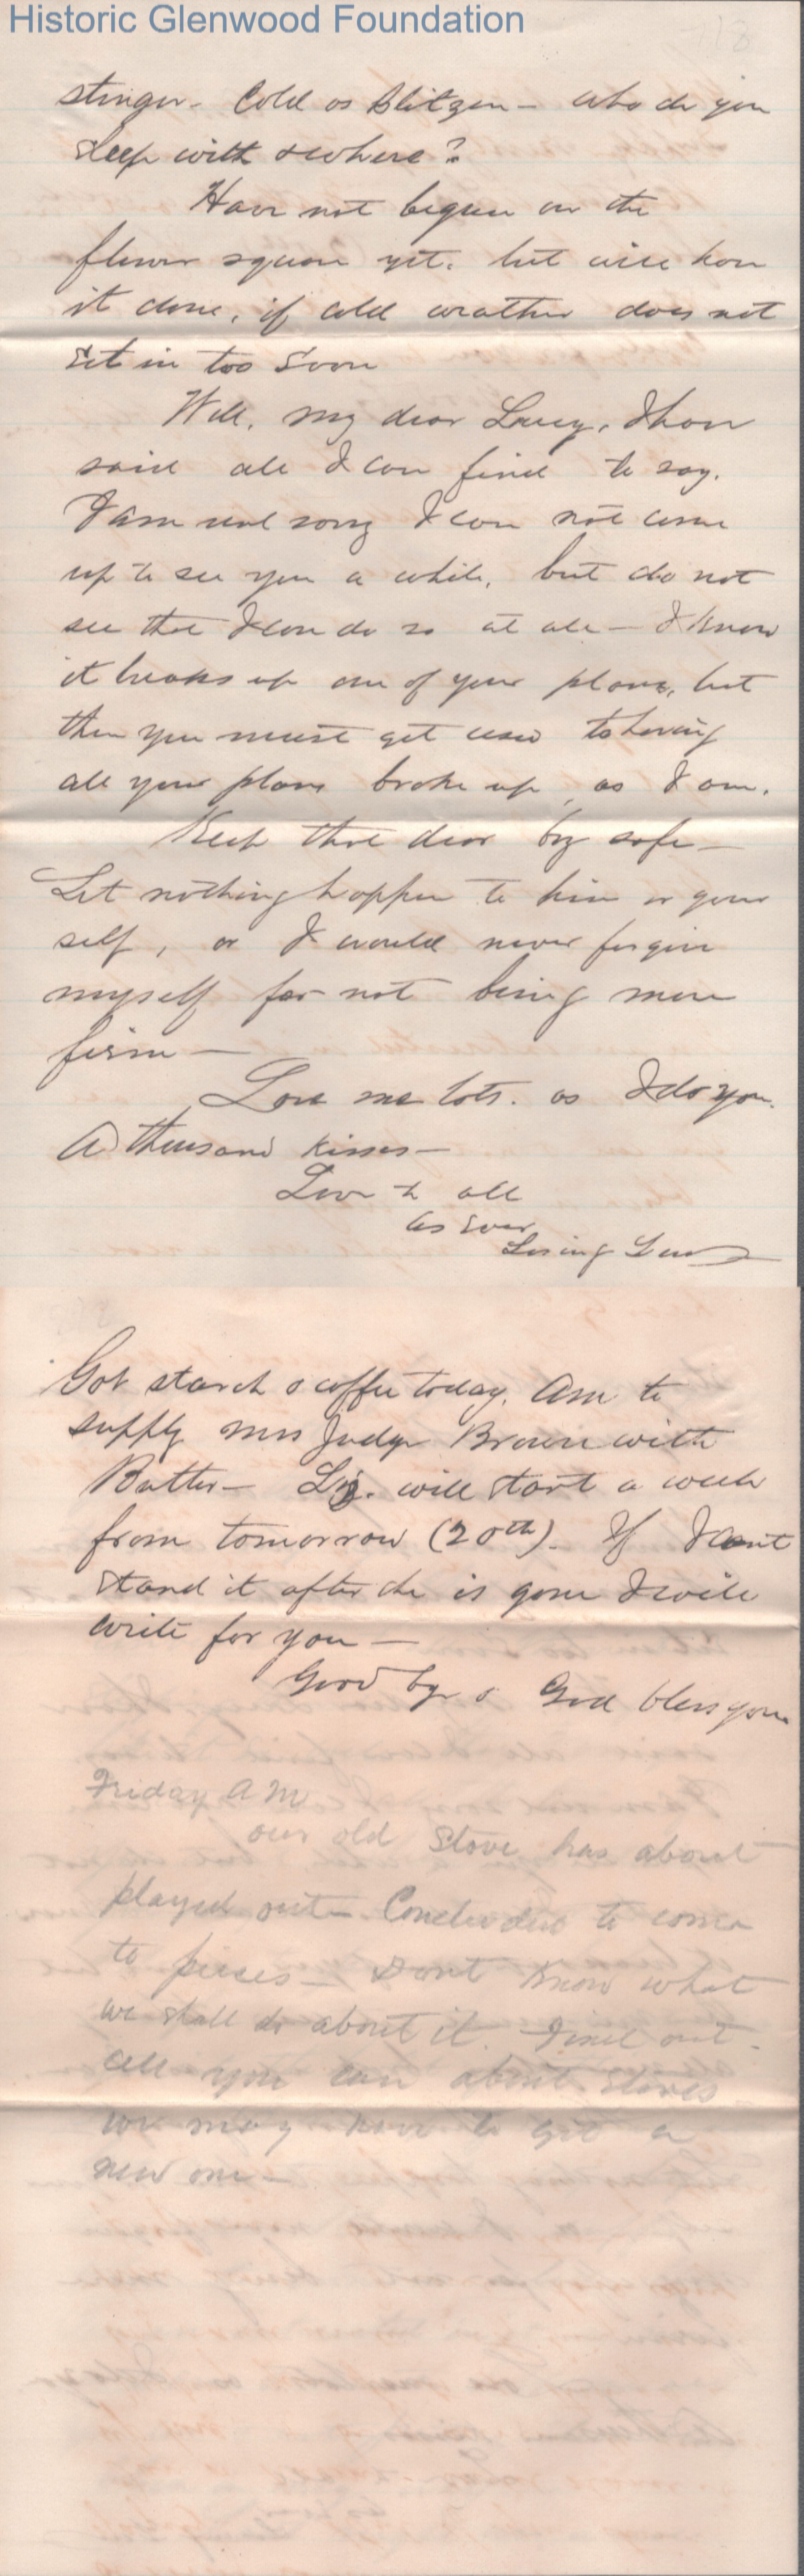 Historic Glenwood Foundation
stinger - Cold as Blitzen - who do you
sleep with & where?
Have not begun on the
flower square yet. but will have
it done, if cold weather does not
set in too soon
Well, my dear Lucy, I have
said all I can find to say.
I am real sorry I can not come
up to see you a while, but do not
see that I can do so at all - I know
it breaks up one of your plans, but
then you must get used to having
all your plans broke up, as I am.
Keep that dear boy safe -
Let nothing happen to him or your
self, or I would never forgive
myself for not being more
firm -
Love me lots. as I do you.
A thousand kisses -
Love to all
as ever
Loving
Got starch & coffee today. Am to
supply Mrs Judge Brown with
Butter - Liz. will start a week
from tomorrow (20th). If I cant
stand it after she is gone I will
write for you -
Good bye & God bless you
Friday AM
our old stove has about
played out - Concluded to come
to pieces - Dont know what
we shall do about it. Find out
all you can about stoves
we may have to get a
new one -